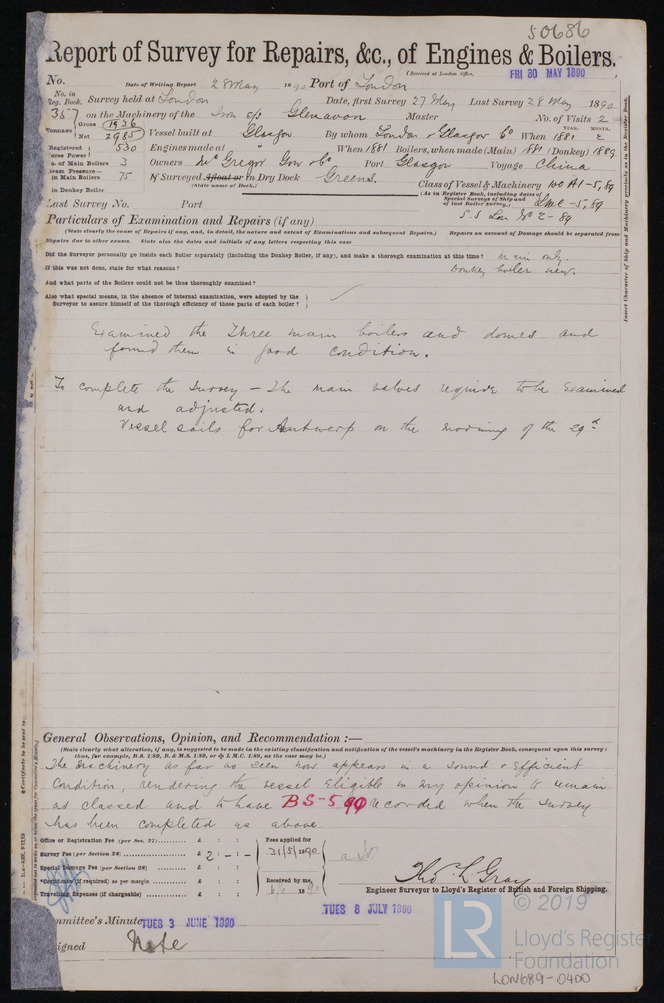 50686
Report of Survey for Repairs, &c., of Engines & Boilers.
(Received at London Office,
FRI 30 MAY 1890
No.
Date of Writing Report 28 May 1890 Port of London
No. in Reg. Book. Survey held at London Date, first Survey 27 May Last Survey 28 May 1890
357 on the Machinery of the Iron s/s Glenavon Master No. of Visits 2
Gross 1936
Net 2985 Vessel built at Glasgow By whom London & Glasgow Co When 1881 2
YEAR. MONTH.
Registered Horse Power 530 Engines made at " When 1881 Boilers, when made (Main) 1881 (Donkey) 1889
No. of Main Boilers 3 Owners McGregor Gow & Co Port Glasgow Voyage China
Steam Pressure in Main Boilers 75 If Surveyed Afloat or in Dry Dock Greens
(State name of Dock.)
in Donkey Boiler
Class of Vessel & Machinery 100 A1-5,89
(As in Register Book, including dates of Special Surveys of Ship and of last Boiler Survey.)
LMC-5,89
S.S Lon No 2-89
Last Survey No. Port
Particulars of Examination and Repairs (if any)
(State clearly the cause of Repairs if any, and, in detail, the nature and extent of Examinations and subsequent Repairs.) Repairs on account of Damage should be separated from
Repairs due to other causes. State also the dates and initials of any letters respecting this case
Did the Surveyor personally go inside each Boiler separately (including the Donkey Boiler, if any), and make a thorough examination at this time? Main only.
If this was not done, state for what reasons? Donkey boiler new.
And what parts of the Boilers could not be thus thoroughly examined?
Also what special means, in the absence of internal examination, were adopted by the
Surveyor to assure himself of the thorough efficiency of those parts of each boiler?
Examined the three main boilers and domes and
found them in good condition.
To complete the survey - The main valves require to be examined
and adjusted.
Vessel sails for Antwerp on the morning of the 29th
Insert Character of Ship and Machinery precisely as in the Register Book.
General Observations, Opinion, and Recommendation :—
(State clearly what alteration, if any, is suggested to be made in the existing classification and notification of the vessel's machinery in the Register Book, consequent upon this survey:
thus, for example, B.S. 1/89, B. & M.S. 1/89, or ✠ L.M.C. 1/89, as the case may be.)
The Machinery as far as seen now appears in a Sound & Efficient
Condition, rendering the vessel Eligible in my opinion to remain
as classed and to have BS-5,90 recorded when the survey
has been completed as above
Office or Registration Fee (per Sec. 27) £ : :
Survey Fee (per Section 28) £ 2 : - : -
Special Damage Fee (per Section 28) £ : :
Certificate (if required) as per margin £ : :
Travelling Expenses (if chargeable) £ : :
Fees applied for
31/5/1890
Received by me,
Thos L. Gray
Engineer Surveyor to Lloyd's Register of British and Foreign Shipping.
Committee's Minute TUES 3 JUNE 1890
TUES 8 JULY 1890
Signed Note
© 2019
LR
Lloyd's Register
Foundation
LON689-0400